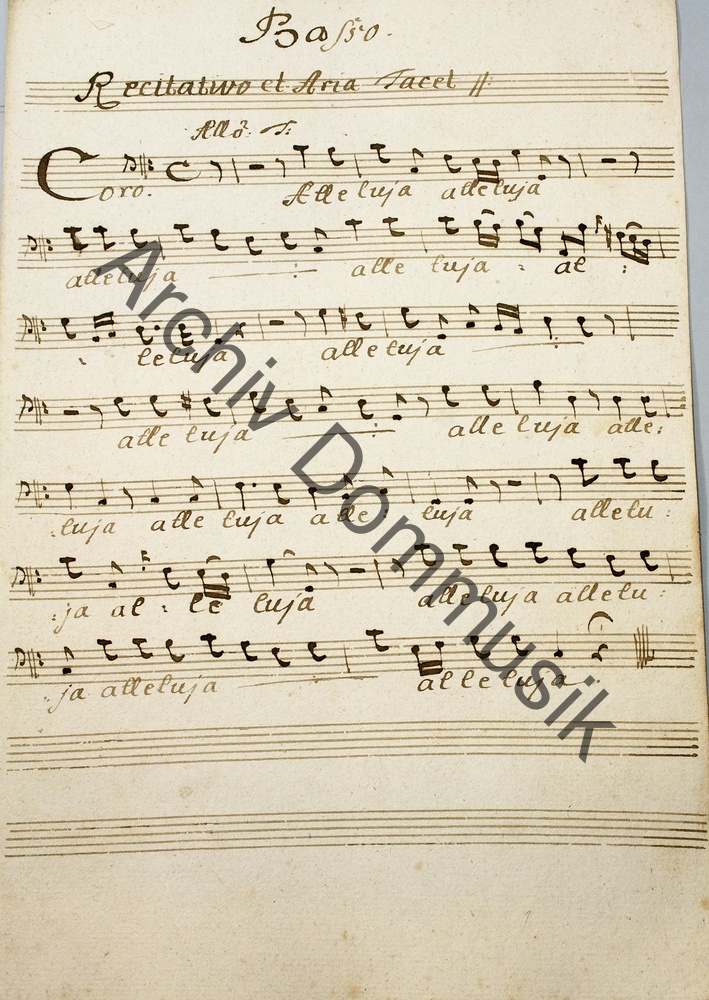 Basso.
Recitativo et Aria Tacet
Allo. T:
Coro. Alleluja alleluja
alleluja alle luja - al :
leluja alleluja
alle luja alle luja alle:
:luja alle luja alle luja allelu :
:ja al : le luja alleluja allelu :
:ja alleluja alleluja
Archiv Dommusik